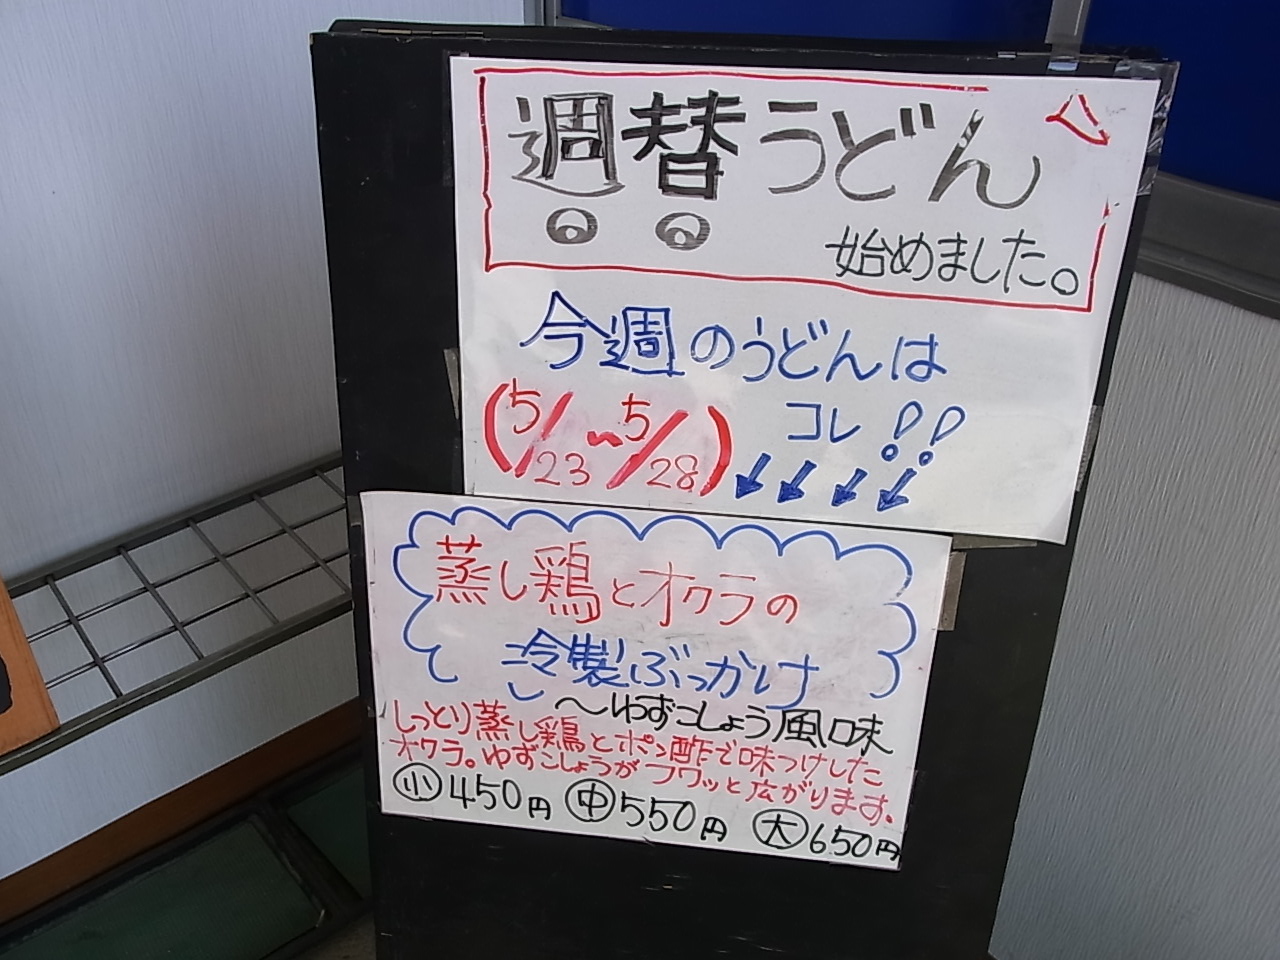 週替うどん
始めました。
今週のうどんは
(5/23~5/28)
コレ!!
↓↓↓↓
蒸し鶏とオクラの
冷製ぶっかけ
～ゆずこしょう風味
しっとり蒸し鶏とポン酢で味つけした
オクラ。ゆずこしょうがフワッと広がります。
小450円 中550円 大650円